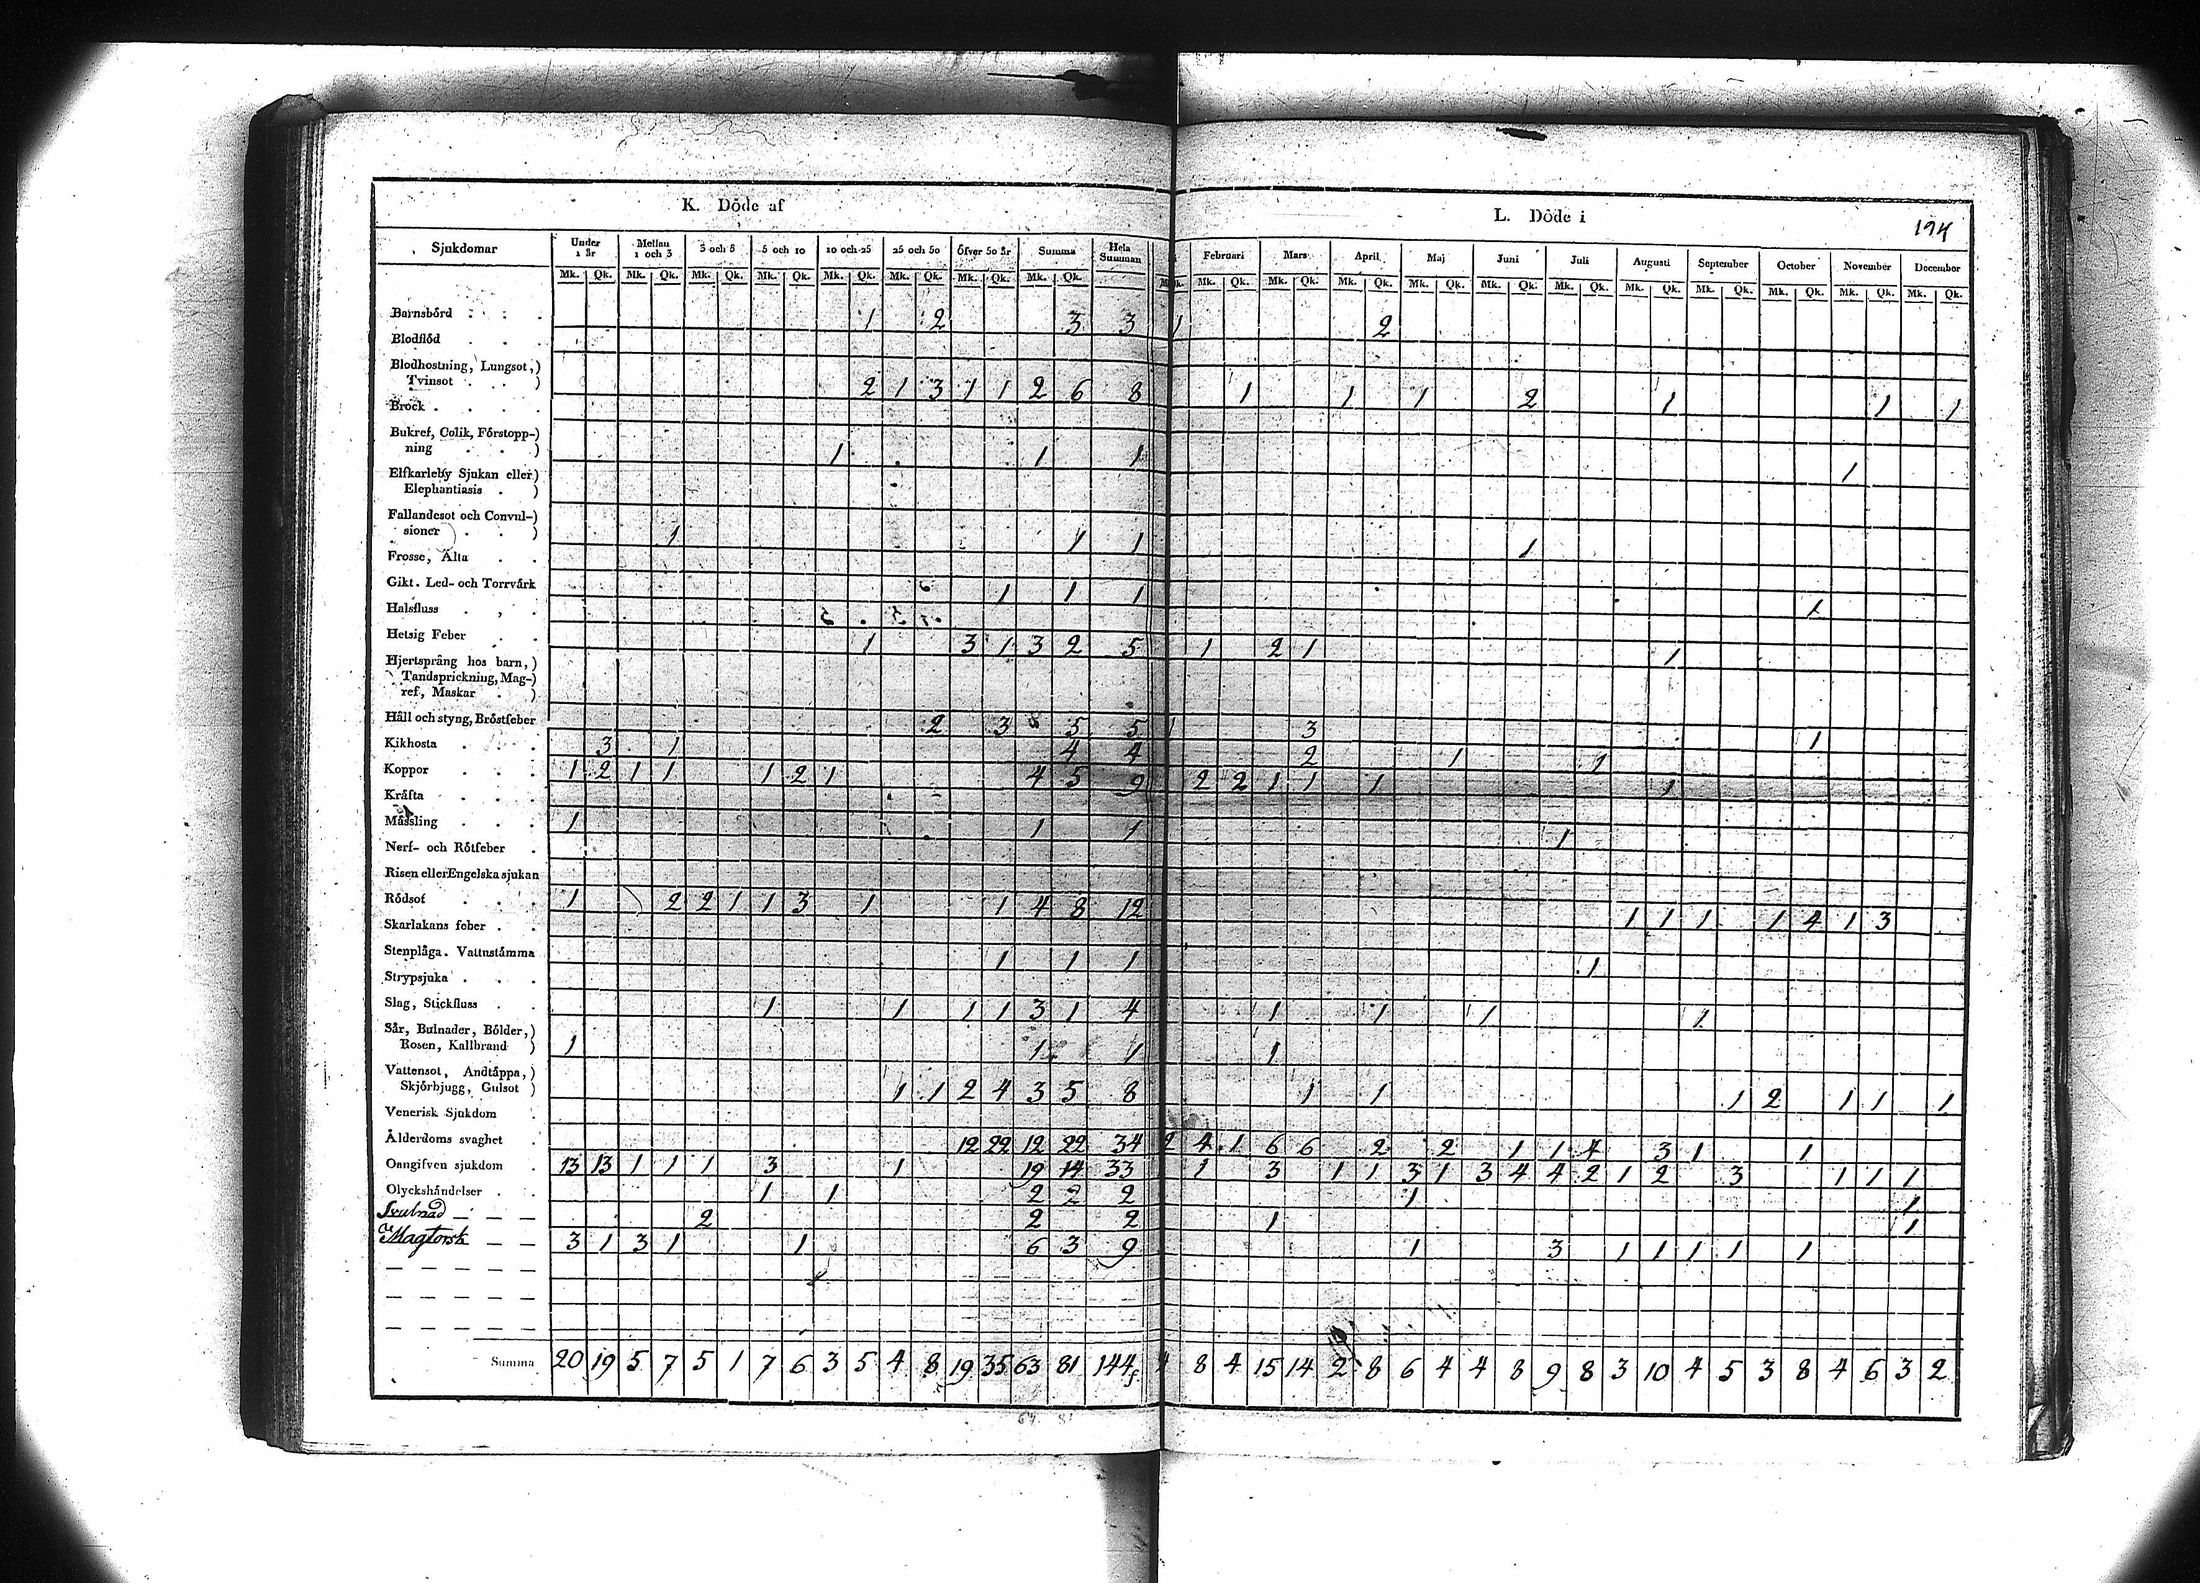 K. Döde af
L. Döde i
194
Sjukdomar | Under 1 år | Mellan 1 och 3 | 3 och 5 | 5 och 10 | 10 och 25 | 25 och 50 | Öfver 50 år | Summa | Hela Summan | Februari | Mars | April | Maj | Juni | Juli | Augusti | September | October | November | December
Mk. Qk. Mk. Qk. Mk. Qk. Mk. Qk. Mk. Qk. Mk. Qk. Mk. Qk. Mk. Qk. Mk. Qk. Mk. Qk. Mk. Qk. Mk. Qk. Mk. Qk. Mk. Qk. Mk. Qk. Mk. Qk. Mk. Qk. Mk. Qk. Mk. Qk.
Barnsbörd 1 2 3 3 1 2
Blodflöd
Blodhostning, Lungsot,)
Tvinsot . . ) 2 1 3 1 1 2 6 8 1 1 1 2 1 1 1
Bröck
Bukref, Colik, Förstopp-)
ning . . ) 1 1 1 1
Elfkarleby Sjukan eller)
Elephantiasis . )
Fallandesot och Convul-)
sioner . . ) 1 1 1 1
Frosse, Älta
Gikt. Led- och Torrvärk 1 1 1 1
Halsfluss
Hetsig Feber 1 3 1 3 2 5 1 2 1 1
Hjertsprång hos barn,)
Tandsprickning, Mag-)
ref, Maskar . )
Håll och styng, Bröstfeber 2 3 5 5 1 3 1
Kikhosta 3 1 4 4 2 1 1
Koppor 1 2 1 1 1 2 1 4 5 9 2 2 1 1 1 1
Kräfta
Mässling 1 1 1 1
Nerf- och Rötfeber
Risen eller Engelska sjukan
Rödsot 1 2 2 1 1 3 1 1 4 8 12 1 1 1 1 4 1 3
Skarlakans feber
Stenplåga. Vattnstämma 1 1 1 1
Strypsjuka
Slag, Stickfluss 1 1 1 1 3 1 4 1 1 1 1
Sår, Bulnader, Bölder,)
Rosen, Kallbrand ) 1 1 1 1
Vattensot, Andtäppa,)
Skjörbjugg, Gulsot ) 1 1 2 4 3 5 8 1 1 1 2 1 1 1
Venerisk Sjukdom
Ålderdoms svaghet 12 22 12 22 34 2 4 1 6 6 2 2 1 1 4 3 1 1
Oangifven sjukdom 13 13 1 1 1 3 1 19 14 33 1 3 1 1 3 1 3 4 4 2 1 2 3 1 1 1
Olyckshändelser 1 1 2 2 2 1 1
2 2 2 1 1
Magtorsk 3 1 3 1 1 6 3 9 1 3 1 1 1 1 1
Summa 20 19 5 7 5 1 7 6 3 5 4 8 19 35 63 81 144 4 8 4 15 14 2 8 6 4 4 8 9 8 3 10 4 5 3 8 4 6 3 2